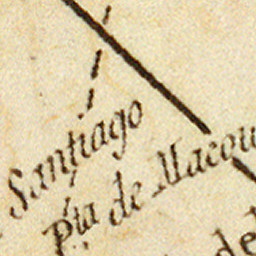 Santiago
Pta de Macou
del